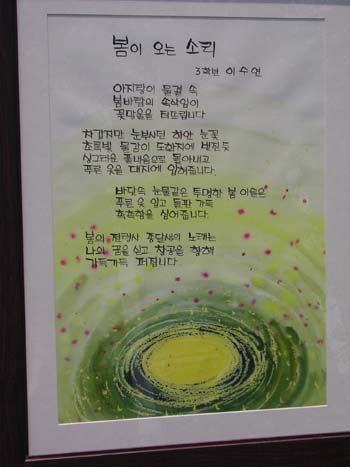 봄이 오는 소리
3학년 이수연
아지랑이 물결 속
봄바람의 속삭임이
꽃망울을 터뜨립니다
차갑지만 눈부시던 하얀 눈꽃
초록빛 물감이 도화지에 번진듯
싱그러운 풀내음으로 돌아나고
푸른 옷을 대지에 입혀줍니다.
바닷속 눈물같은 투명한 봄 이슬은
푸른 옷 입고 들판 가득
촉촉함을 실어줍니다.
봄의 전령사 종달새의 노래는
나의 꿈을 싣고 창공을 향해
가득가득 퍼집니다.